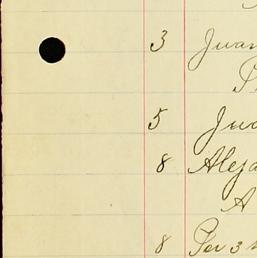 3 Juan
5 Jua
8 Aleja
A
8 Por 3